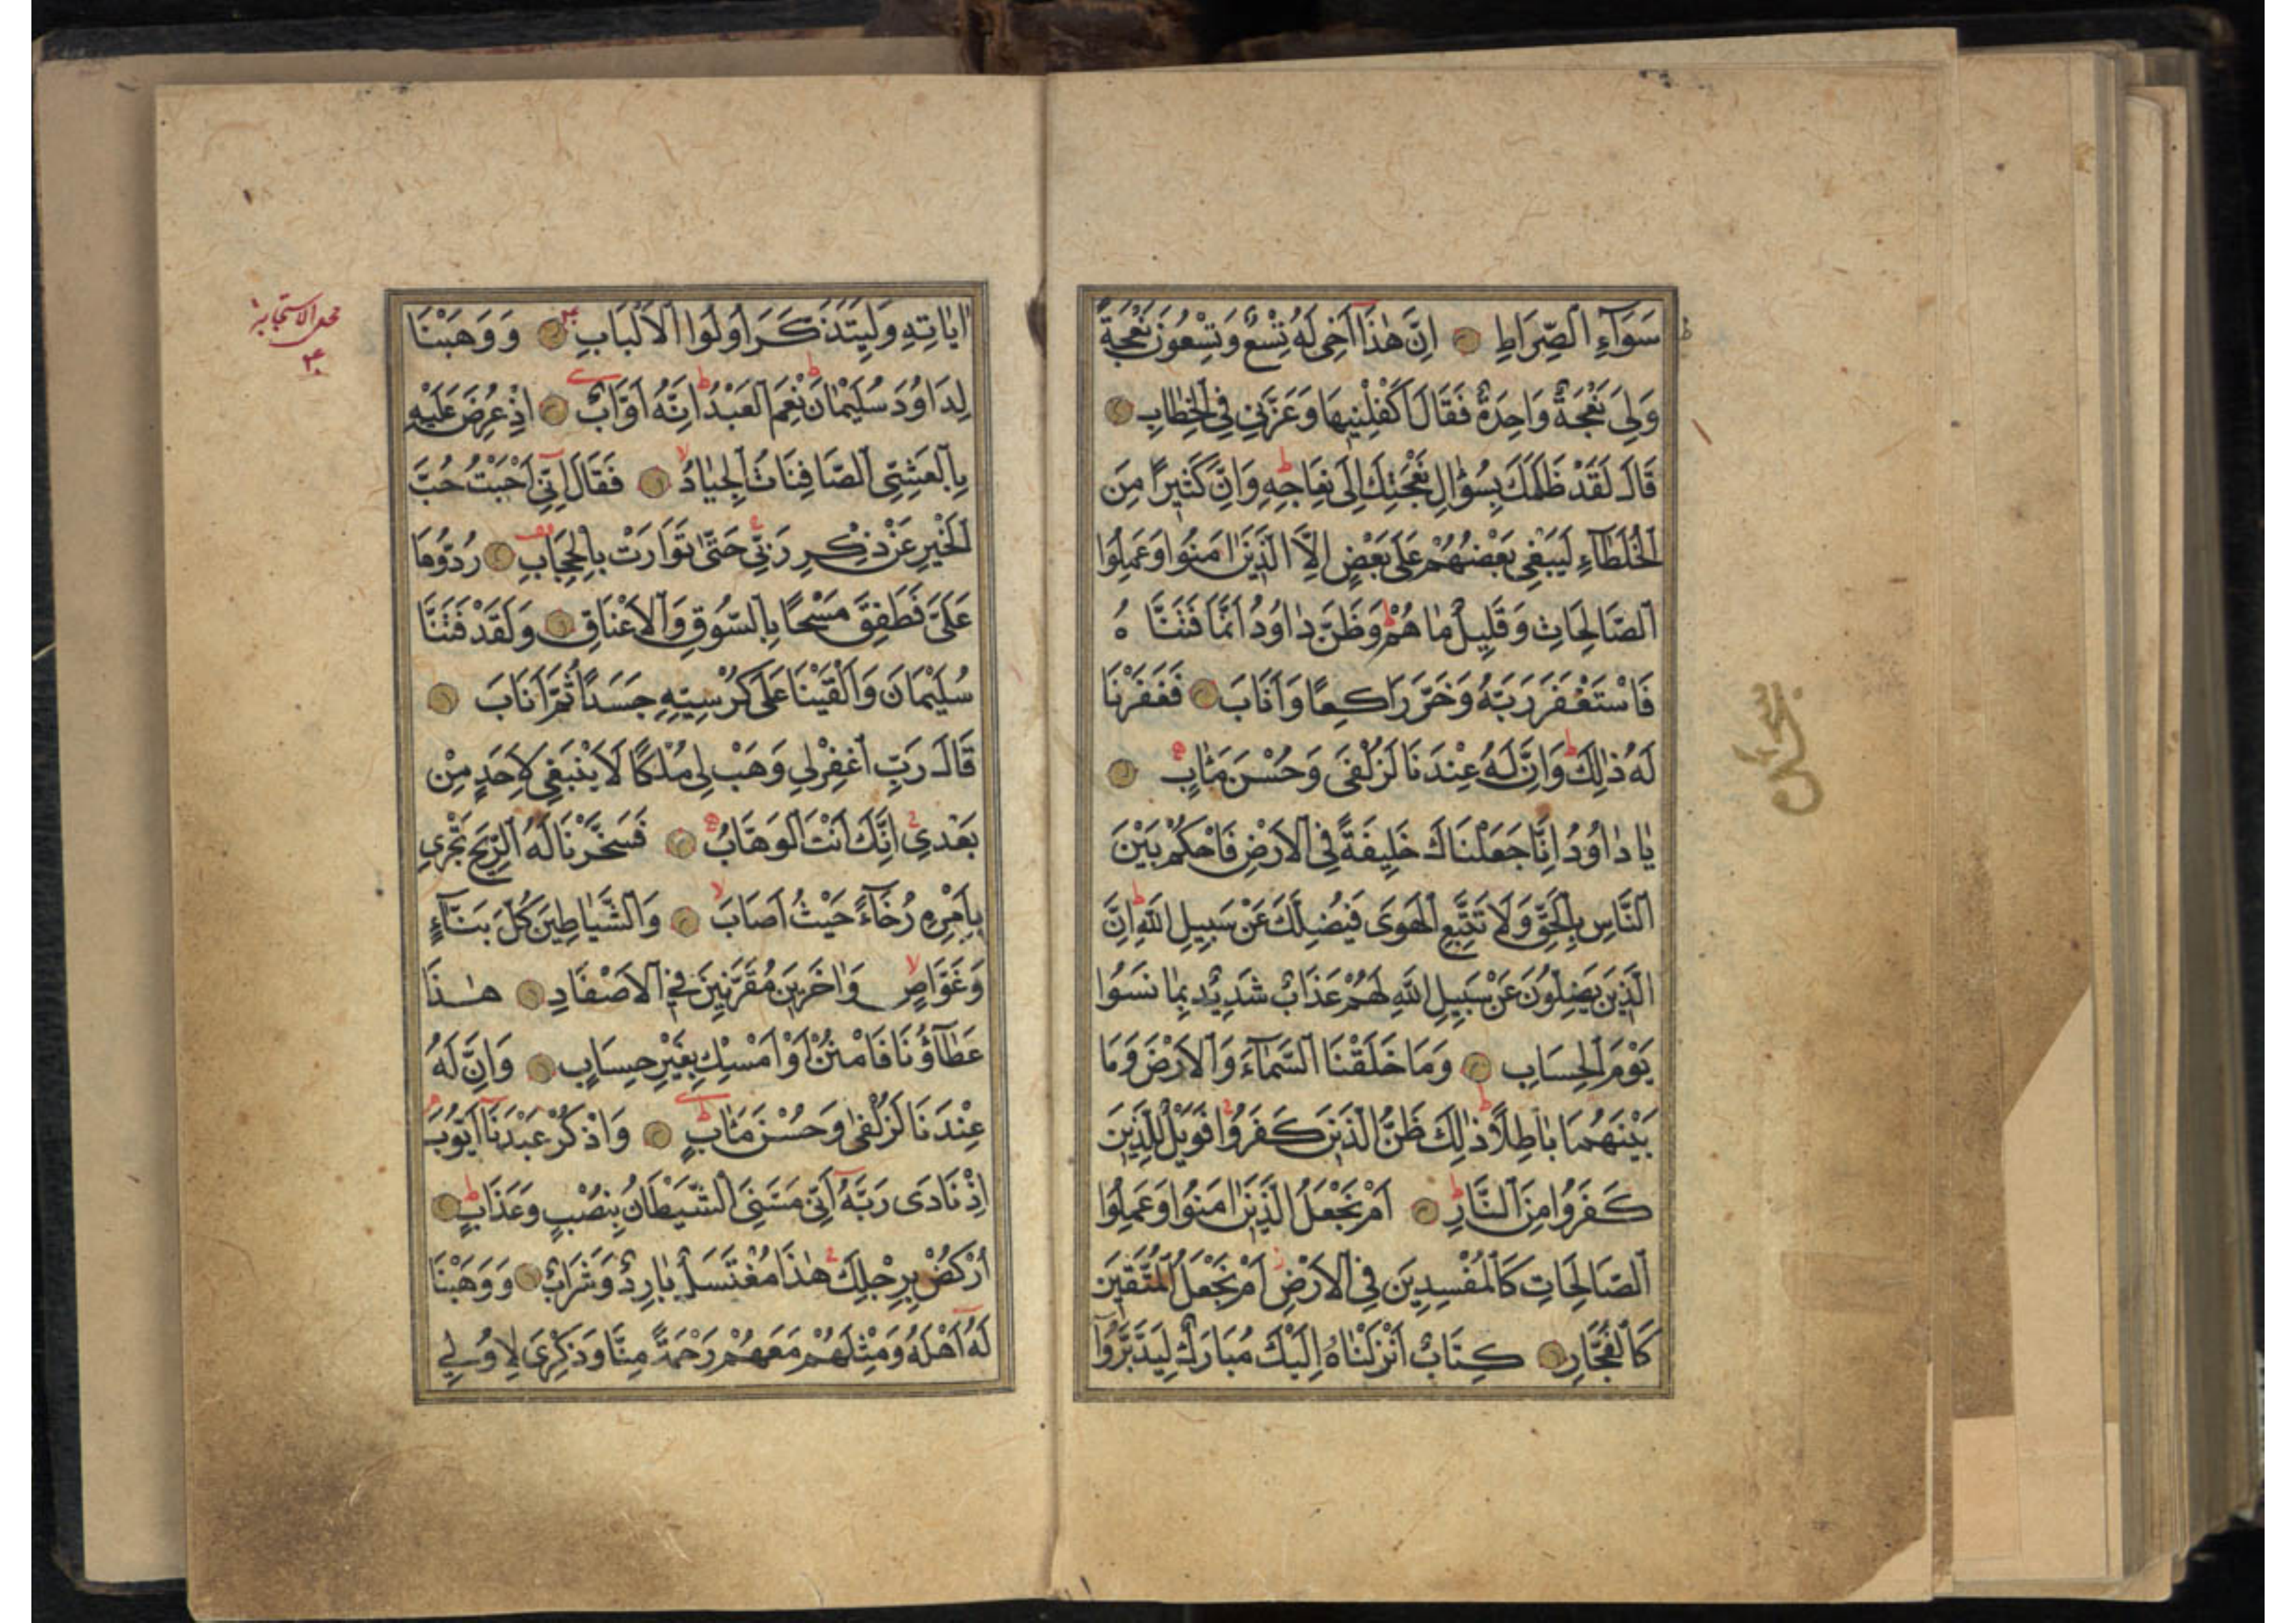 سَوَآءِ الصِّرَاطِ اِنَّ هٰذَا اَخِى لَهُ تِسْعٌ وَتِسْعُونَ نَعْجَةً
وَلِىَ نَعْجَةٌ وَاحِدَةٌ فَقَالَ اَكْفِلْنِيهَا وَعَزَّنِى فِى الْخِطَابِ
قَالَ لَقَدْ ظَلَمَكَ بِسُؤَالِ نَعْجَتِكَ اِلَى نِعَاجِهِ وَاِنَّ كَثِيرًا مِنَ
الْخُلَطَآءِ لَيَبْغِى بَعْضُهُمْ عَلَى بَعْضٍ اِلَّا الَّذِينَ اٰمَنُوا وَعَمِلُوا
الصَّالِحَاتِ وَقَلِيلٌ مَا هُمْ وَظَنَّ دَاوُدُ اَنَّمَا فَتَنَّا هُ
فَاسْتَغْفَرَ رَبَّهُ وَخَرَّ رَاكِعًا وَاَنَابَ فَغَفَرْنَا
لَهُ ذٰلِكَ وَاِنَّ لَهُ عِنْدَنَا لَزُلْفَى وَحُسْنَ مَاٰبٍ
يَا دَاوُدُ اِنَّا جَعَلْنَاكَ خَلِيفَةً فِى الْاَرْضِ فَاحْكُمْ بَيْنَ
النَّاسِ بِالْحَقِّ وَلَا تَتَّبِعِ الْهَوَى فَيُضِلَّكَ عَنْ سَبِيلِ اللّٰهِ اِنَّ
الَّذِينَ يَضِلُّونَ عَنْ سَبِيلِ اللّٰهِ لَهُمْ عَذَابٌ شَدِيدٌ بِمَا نَسُوا
يَوْمَ الْحِسَابِ وَمَا خَلَقْنَا السَّمَآءَ وَالْاَرْضَ وَمَا
بَيْنَهُمَا بَاطِلًا ذٰلِكَ ظَنُّ الَّذِينَ كَفَرُوا فَوَيْلٌ لِلَّذِينَ
كَفَرُوا مِنَ النَّارِ اَمْ نَجْعَلُ الَّذِينَ اٰمَنُوا وَعَمِلُوا
الصَّالِحَاتِ كَالْمُفْسِدِينَ فِى الْاَرْضِ اَمْ نَجْعَلُ الْمُتَّقِينَ
كَالْفُجَّارِ كِتَابٌ اَنْزَلْنَاهُ اِلَيْكَ مُبَارَكٌ لِيَدَّبَّرُوٓا
اٰيَاتِهِ وَلِيَتَذَكَّرَ اُولُوا الْاَلْبَابِ وَوَهَبْنَا
لِدَاوُدَ سُلَيْمٰانَ نِعْمَ الْعَبْدُ اِنَّهُ اَوَّابٌ اِذْ عُرِضَ عَلَيْهِ
بِالْعَشِىِّ الصَّافِنَاتُ الْجِيَادُ فَقَالَ اِنِّى اَحْبَبْتُ حُبَّ
الْخَيْرِ عَنْ ذِكْرِ رَبِّى حَتّٰى تَوَارَتْ بِالْحِجَابِ رُدُّوهَا
عَلَىَّ فَطَفِقَ مَسْحًا بِالسُّوقِ وَالْاَعْنَاقِ وَلَقَدْ فَتَنَّا
سُلَيْمَانَ وَاَلْقَيْنَا عَلَى كُرْسِيِّهِ جَسَدًا ثُمَّ اَنَابَ
قَالَ رَبِّ اغْفِرْلِى وَهَبْ لِى مُلْكًا لَا يَنْبَغِى لِاَحَدٍ مِنْ
بَعْدِى اِنَّكَ اَنْتَ الْوَهَّابُ فَسَخَّرْنَا لَهُ الرِّيحَ تَجْرِى
بِاَمْرِهِ رُخَآءً حَيْثُ اَصَابَ وَالشَّيَاطِينَ كُلَّ بَنَّآءٍ
وَغَوَّاصٍ وَاٰخَرِينَ مُقَرَّنِينَ فِى الْاَصْفَادِ هٰذَا
عَطَآؤُنَا فَامْنُنْ اَوْ اَمْسِكْ بِغَيْرِ حِسَابٍ وَاِنَّ لَهُ
عِنْدَنَا لَزُلْفٰى وَحُسْنَ مَاٰبٍ وَاذْكُرْ عَبْدَنَآ اَيُّوبَ
اِذْ نَادَى رَبَّهُ اَنِّى مَسَّنِىَ الشَّيْطَانُ بِنُصْبٍ وَعَذَابٍ
اُرْكُضْ بِرِجْلِكَ هٰذَا مُغْتَسَلٌ بَارِدٌ وَشَرَابٌ وَوَهَبْنَا
لَهُ اَهْلَهُ وَمِثْلَهُمْ مَعَهُمْ رَحْمَةً مِنَّا وَذِكْرَى لِاُولِى